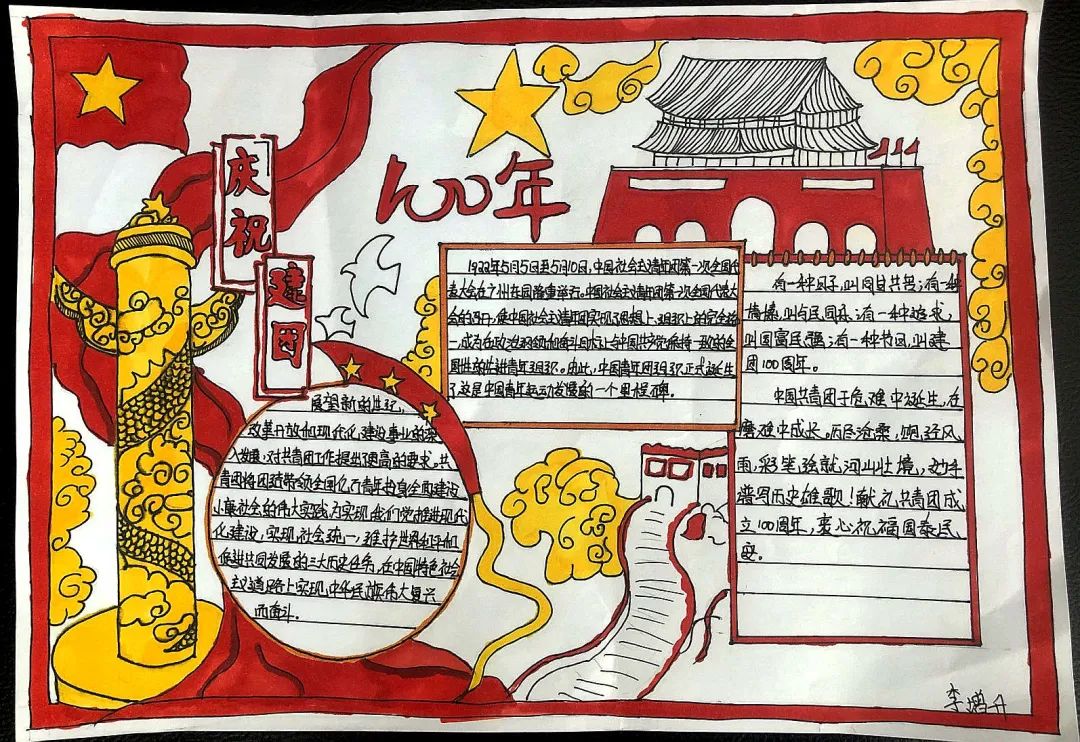 庆祝
建团
100年
1922年5月5日至5月10日,中国社会主义青年团第一次全国代
表大会在广州东园隆重举行。中国社会主义青年团第一次全国代表大
会的召开,使中国社会主义青年团实现了思想上、组织上的完全统
一,成为在政治纲领和奋斗目标上与中国共产党保持一致的全
国性的先进青年组织。由此,中国青年团组织正式诞生
了这是中国青年运动发展的一个里程碑。
有一种因子,叫同自共号;有一种
情愫,叫与民同乐;有一种追求,
叫国富民强;有一种节日,叫建
团100周年。
中国共青团于危难中诞生,在
磨难中成长。历尽沧桑,饱经风
雨,彩笔绘就河山壮境,妙手
谱写历史雄歌!献礼共青团成
立100周年,衷心祝福国泰民
安。
展望新的世纪,
改革开放和现代化建设事业的深
入发展,对共青团工作提出更高的要求。共
青团将团结带领全国亿万青年投身全面建设
小康社会的伟大实践,为实现我们党推进现代
化建设,实现社会统一,维护世界和平和
促进共同发展的三大历史任务,在中国特色社会
主义道路上实现中华民族伟大复兴
而奋斗。
李增升